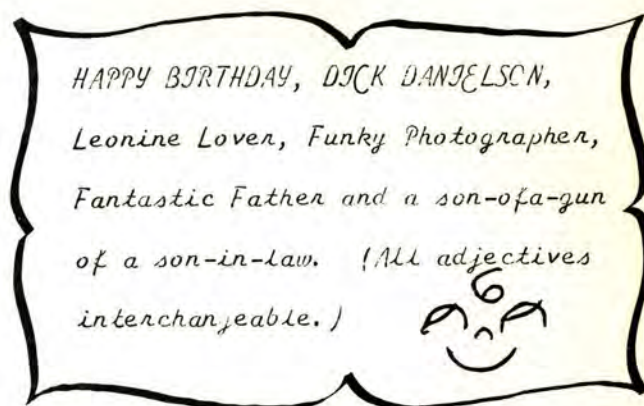 HAPPY BIRTHDAY, DICK DANIELSON,
Leonine Lover, Funky Photographer,
Fantastic Father and a son-ofa-gun
of a son-in-law. (All adjectives
interchangeable.)